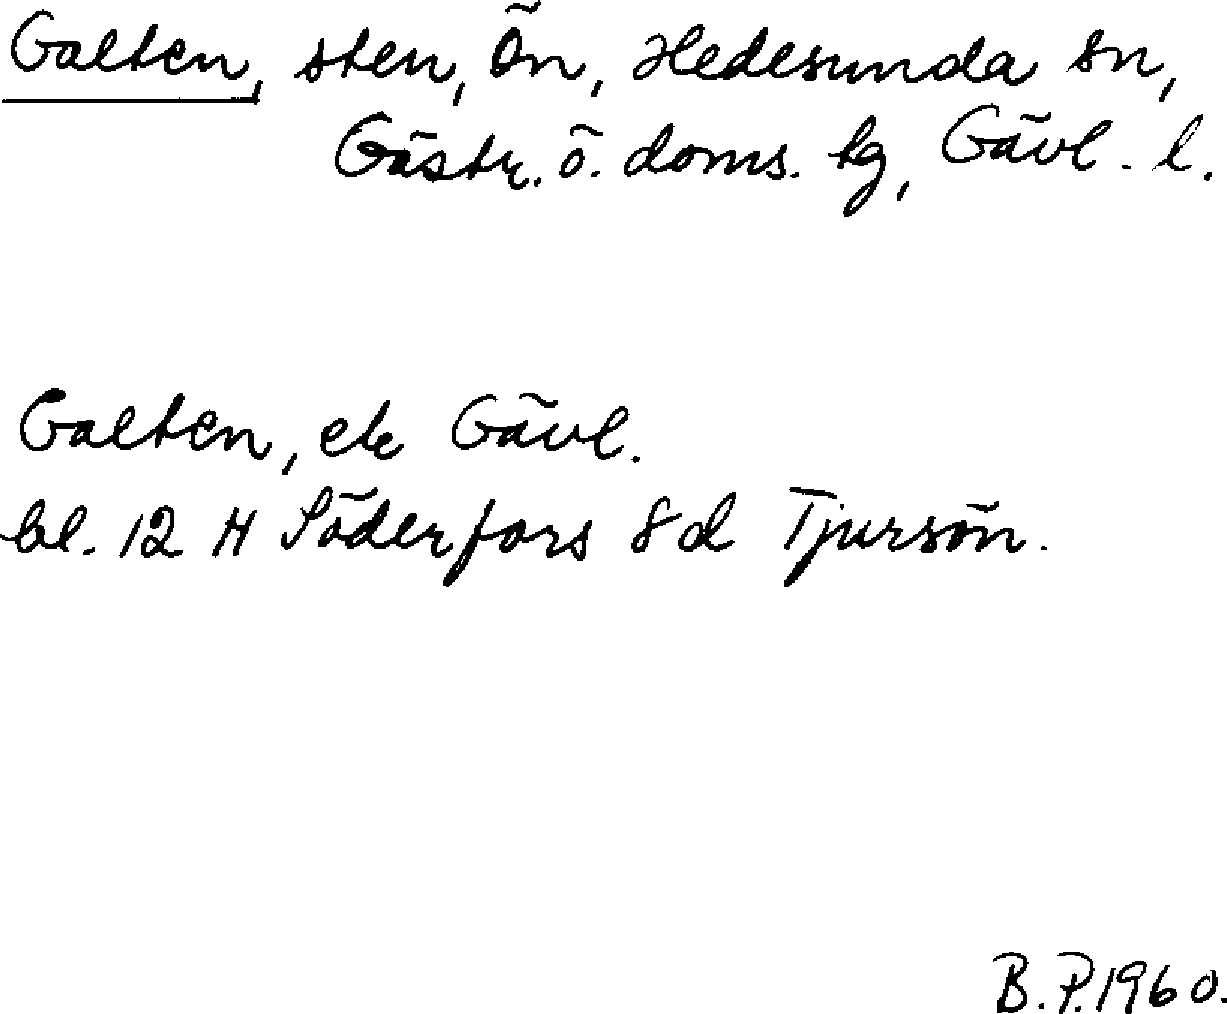 Galten, sten, Ön, Hedesunda sn,
Gästr. ö. doms. tg, Gävl. l.
Galten, ek Gävl.
bl. 12 H Söderfors 8d Tjursön.
B.P. 1960.